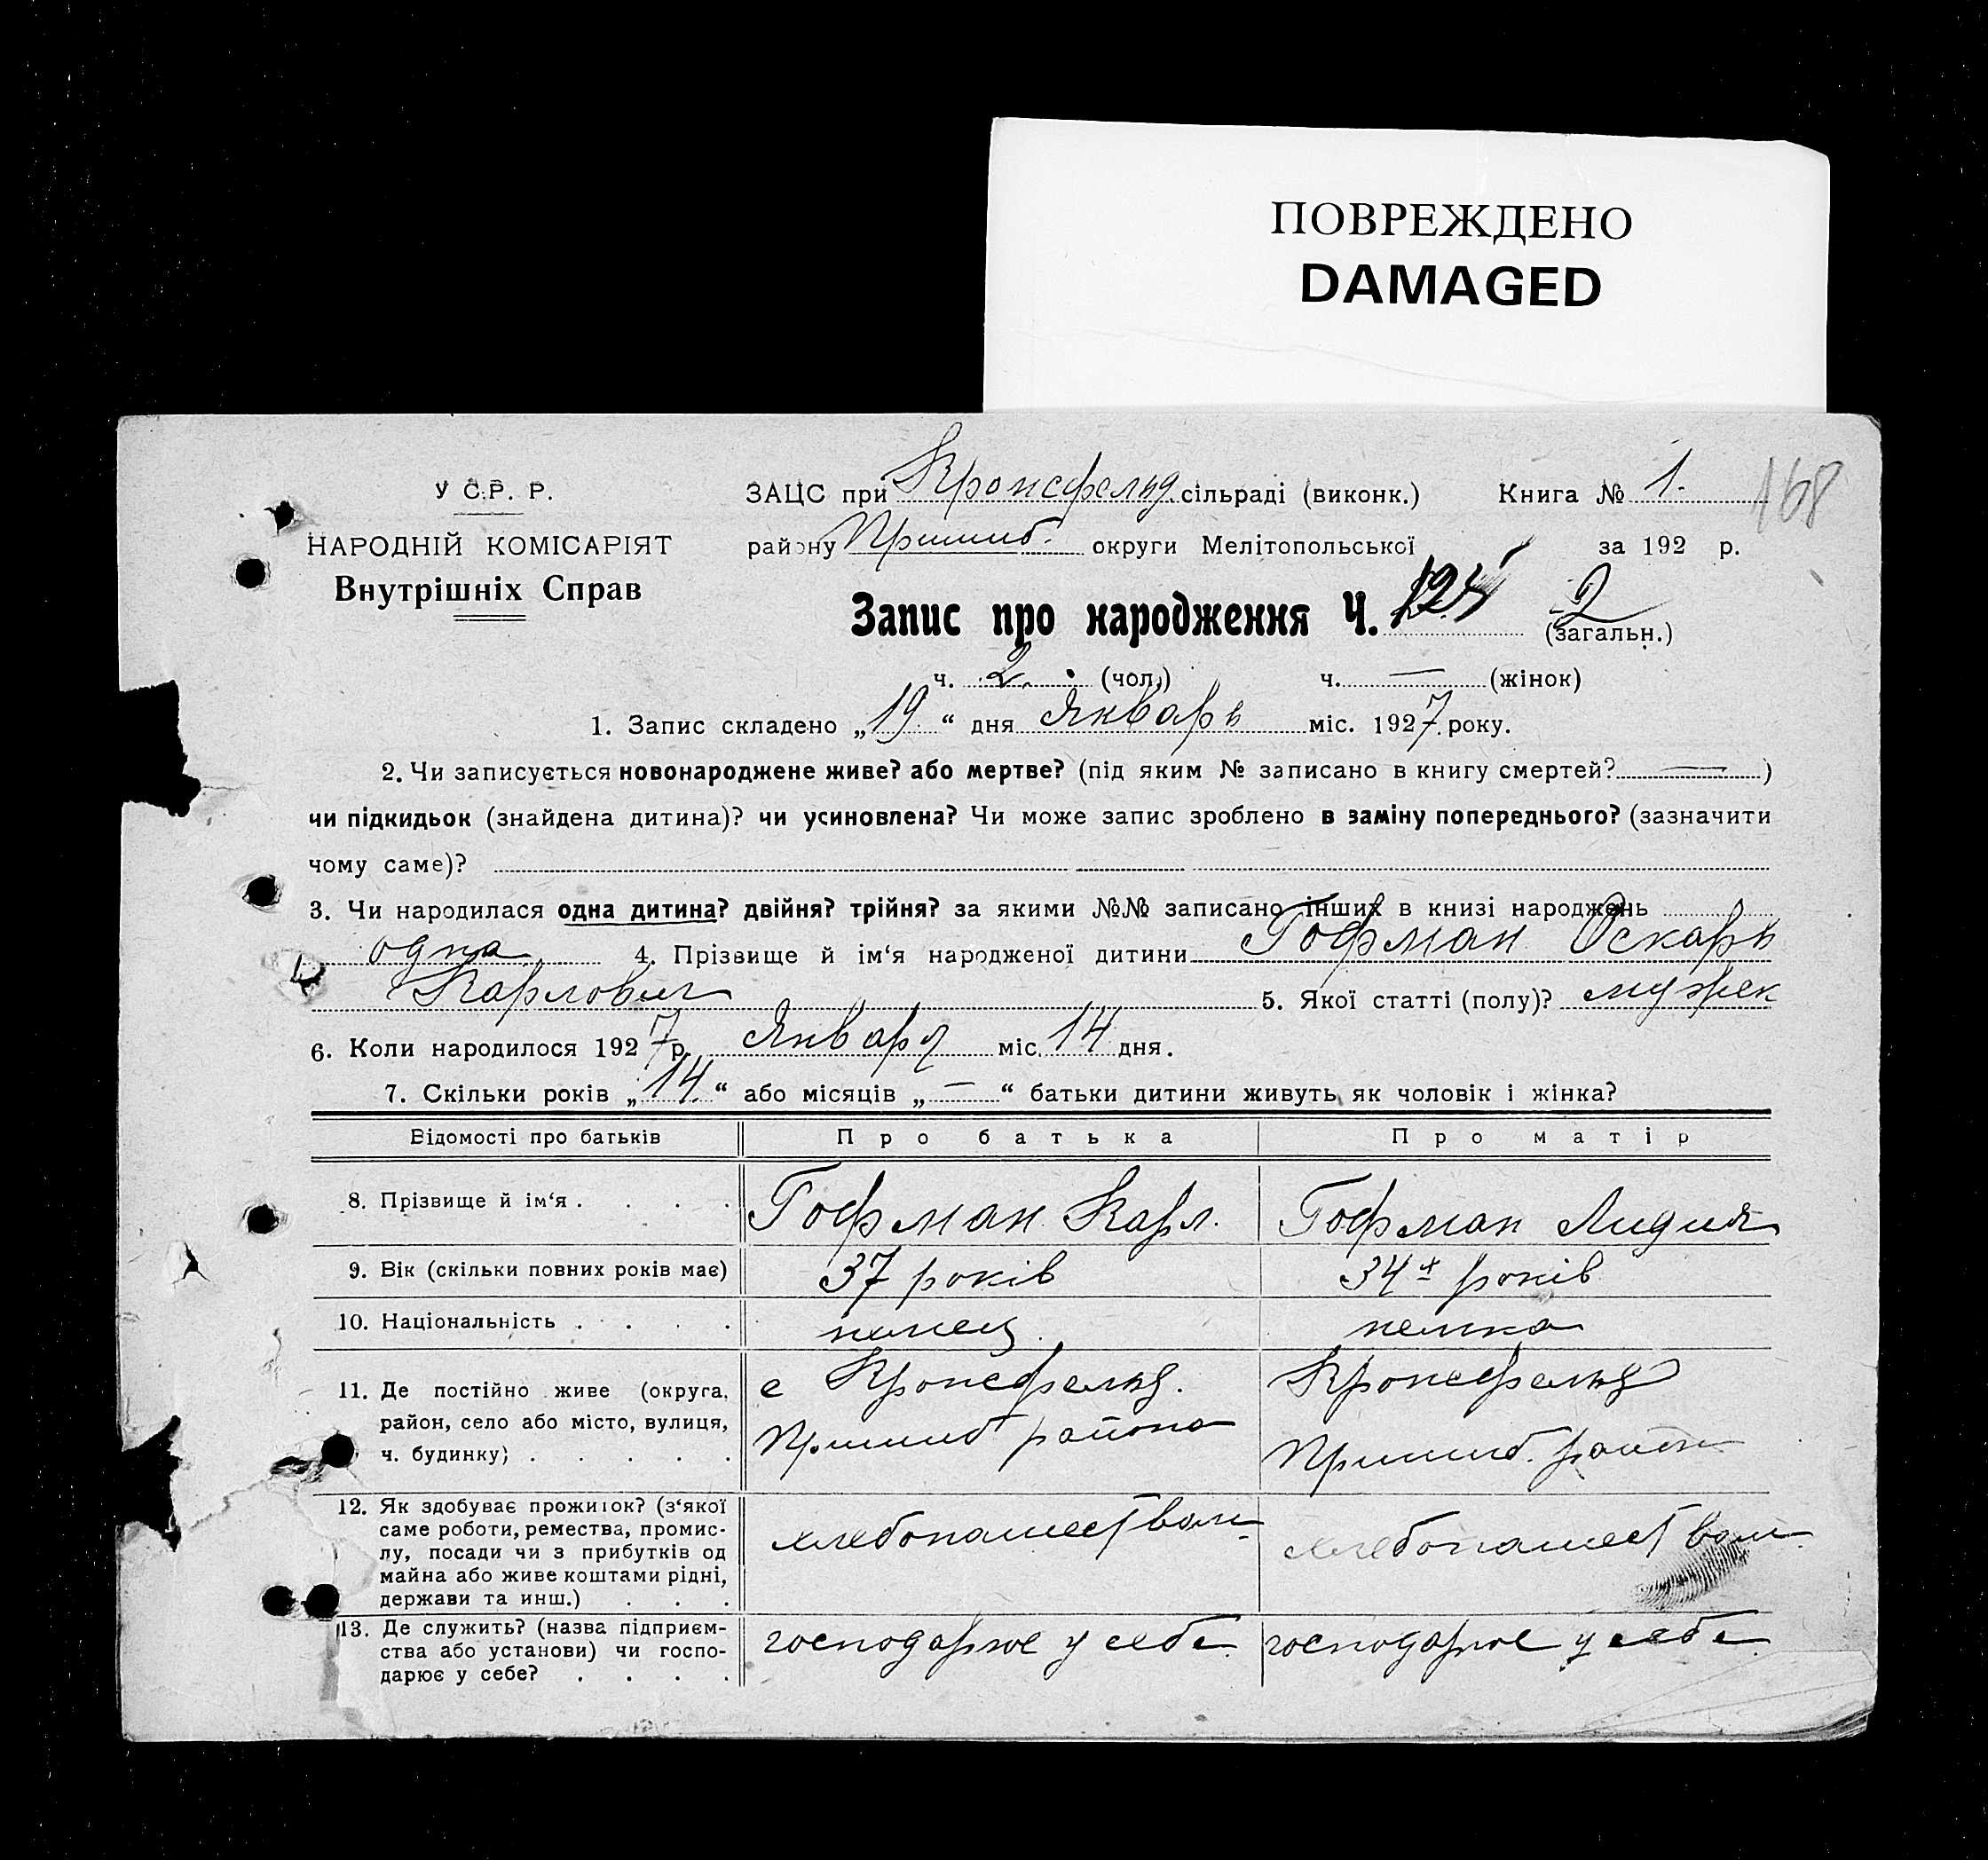 ПОВРЕЖДЕНО
DAMAGED
У С.Р. Р.
НАРОДНІЙ КОМІСАРІЯТ
Внутрішніх Справ
ЗАЦС при Кронсфельд сільраді (виконк.) Книга № 1. 168
району Пришиб. округи Мелітопольської за 192 р.
Запис про народження Ч. 2 (загальн.)
ч. 2. (чол.) ч. — (жінок)
1. Запис складено „19“ дня Январь міс. 1927 року.
2. Чи записується новонароджене живе? або мертве? (під яким № записано в книгу смертей? — )
чи підкидьок (знайдена дитина)? чи усиновлена? Чи може запис зроблено в заміну попереднього? (зазначити
чому саме)?
3. Чи народилася одна дитина? двійня? трійня? за якими №№ записано інших в книзі народжень
одна 4. Прізвище й ім‘я народженої дитини Гофман Оскарь
Карлович 5. Якої статті (полу)? мужск
6. Коли народилося 1927 р. Января міс. 14 дня.
7. Скільки років „14.“ або місяців „—“ батьки дитини живуть як чоловік і жінка?
Відомості про батьків Про батька Про матір
8. Прізвище й ім‘я . . . . . Гофман Карл. Гофман Лидия
9. Вік (скільки повних років має) 37 років 34 років
10. Національність . . . . немец. немка
11. Де постійно живе (округа, район, село або місто, вулиця, ч. будинку) . . . . . с Кронсфельд. Пришиб района Кронсфельд Пришиб. район
12. Як здобуває прожиток? (з‘якої саме роботи, ремества, промислу, посади чи з прибутків од майна або живе коштами рідні, держави та инш.) . . . хлебопашеством хлебопашеством
13. Де служить? (назва підприємства або установи) чи господарює у себе? . . . . господарює у себе господарює у себе